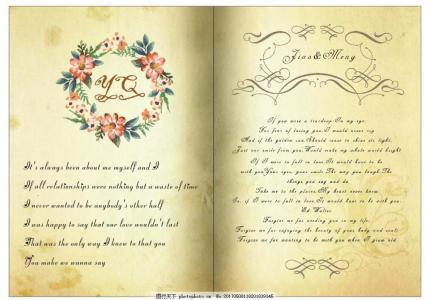 YQ
It's always been about me myself and I
If all relationships were nothing but a waste of time
I never wanted to be anybody's other half
I was happy to say that our love wouldn't last
That was the only way I knew to that you
You make we wanna say
Jiao&Meng
If you were a teardrop;In my eye,
For fear of losing you,I would never cry
And if the golden sun,Should cease to shine its light,
Just one smile from you,Would make my whole world bright
If I were to fall in love,It would have to be
with you,Your eyes, your smile,The way you laugh,The
things you say and do
Take me to the places,My heart never knew
So, if I were to fall in love,It would have to be with you.
Ed Walter
Forgive me for needing you in my life;
Forgive me for enjoying the beauty of your body and soul;
Forgive me for wanting to be with you when I grow old
图行天下 photophoto.cn No.